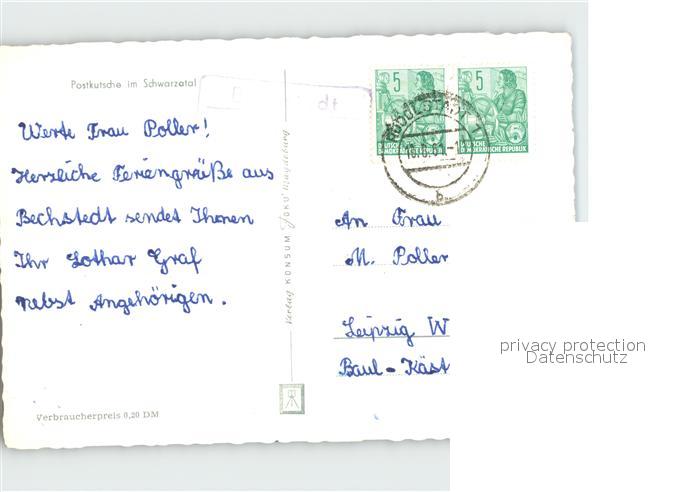 Postkutsche im Schwarzatal
Werte Frau Poller!
Herzliche Feriengrüße aus
Bechstedt sendet Ihnen
Ihr Lothar Graf
nebst Angehörigen.
Verbraucherpreis 0,20 DM
Verlag KONSUM FOKU Magdeburg
dt
5
5
DEUTSCHE
DEMOKRATISCHE REPUBLIK
DEUTSCHE
DEMOKRATISCHE REPUBLIK
RUDOLSTADT 1
b
An Frau
M. Poller
Leipzig W
Baul-Käst
privacy protection
Datenschutz